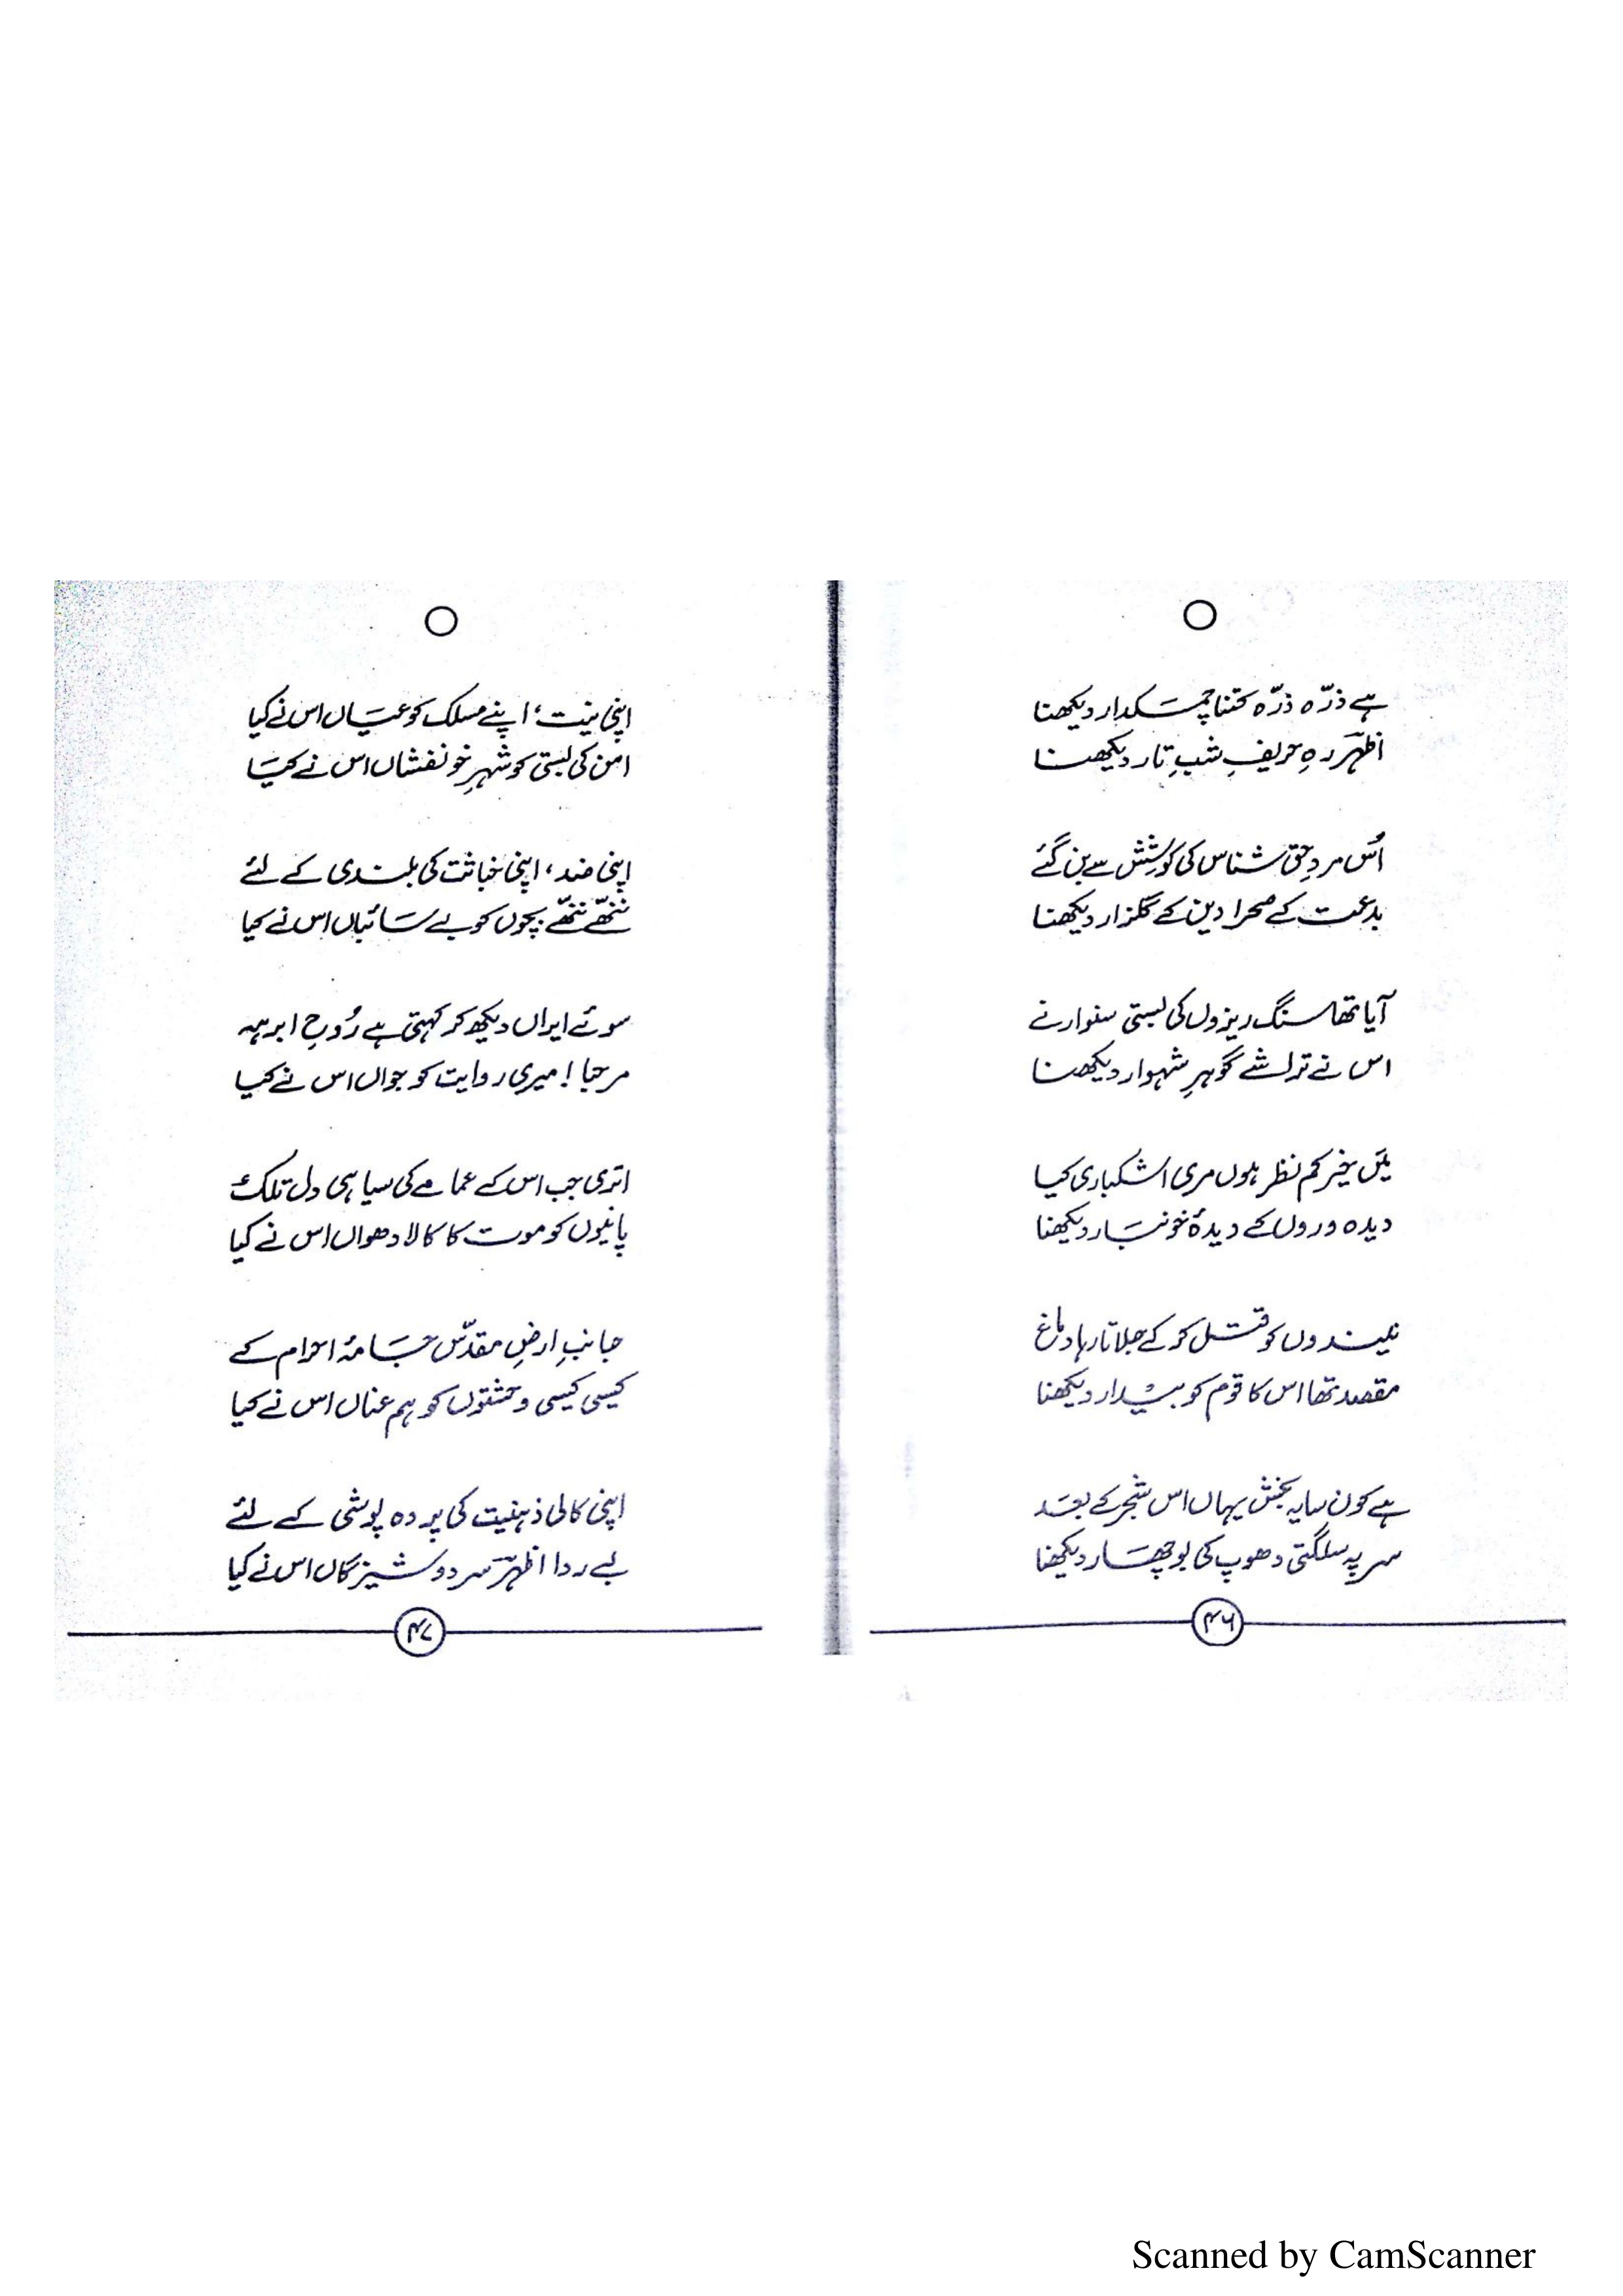 ہے ذرّہ ذرّہ کتنا چمکدار دیکھنا
اظہرؔ رہِ حریفِ شبِ تار دیکھنا
اُس مردِ حق شناس کی کوشش سے بن گئے
بدعت کے صحرا دین کے گلزار دیکھنا
آیا تھا سنگ ریزوں کی بستی سنوارنے
اس نے تراشے گوہرِ شہوار دیکھنا
میں خیر کم نظر ہوں مری اشکباری کیا
دیدہ وروں کے دیدۂ خونبار دیکھنا
نیندوں کو قتل کر کے جلاتا رہا دماغ
مقصد تھا اس کا قوم کو بیدار دیکھنا
ہے کون سایہ بخش یہاں اس شجر کے بعد
سر پہ سلگتی دھوپ کی بوچھار دیکھنا
۴۶
اپنی نیت، اپنے مسلک کو عیاں اس نے کیا
امن کی بستی کو شہرِ خونفشاں اس نے کیا
اپنی ضد، اپنی خباثت کی بلندی کے لئے
ننھّے ننھّے بچوں کو بے سائباں اس نے کیا
سوئے ایراں دیکھ کر کہتی ہے رُوحِ ابرہہ
مرحبا! میری روایت کو جواں اس نے کیا
اتری جب اس کے عمامے کی سیاہی دل تلک
پانیوں کو موت کا کالا دھواں اس نے کیا
جانبِ ارضِ مقدّس جامۂ احرام کے
کیسی کیسی وحشتوں کو ہم عناں اس نے کیا
اپنی کالی ذہنیت کی پردہ پوشی کے لئے
بے ردا اظہرؔ سر دوشیزگاں اس نے کیا
۴۷
Scanned by CamScanner